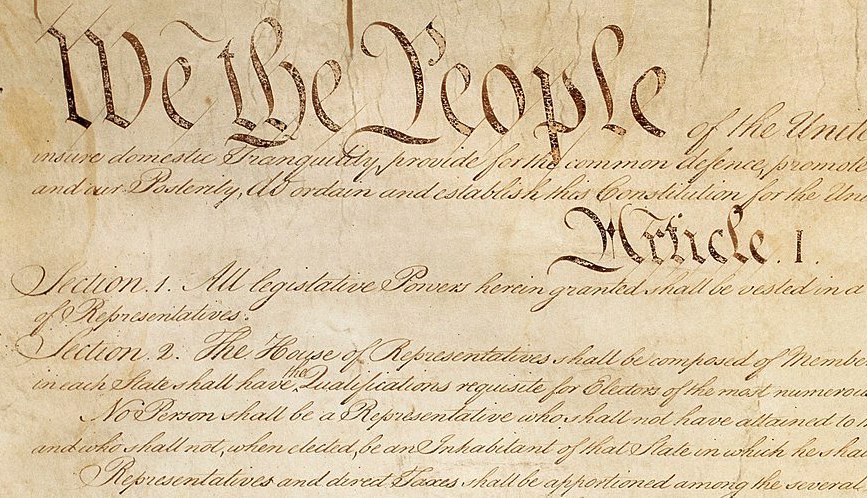 We the People of the Unit
insure domestic Tranquility, provide for the common defence, promote
and our Posterity, do ordain and establish this Constitution for the Uni
Article. I.
Section. 1. All legislative Powers herein granted shall be vested in a
of Representatives.
Section. 2. The House of Representatives shall be composed of Memb
in each State shall have the Qualifications requisite for Electors of the most numero
No Person shall be a Representative who shall not have attained to
and who shall not, when elected, be an Inhabitant of that State in which he sha
Representatives and direct Taxes shall be apportioned among the severa